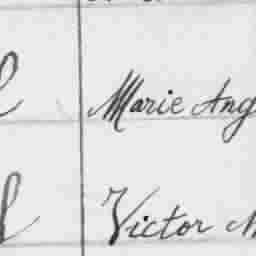 Marie Ang
Victor